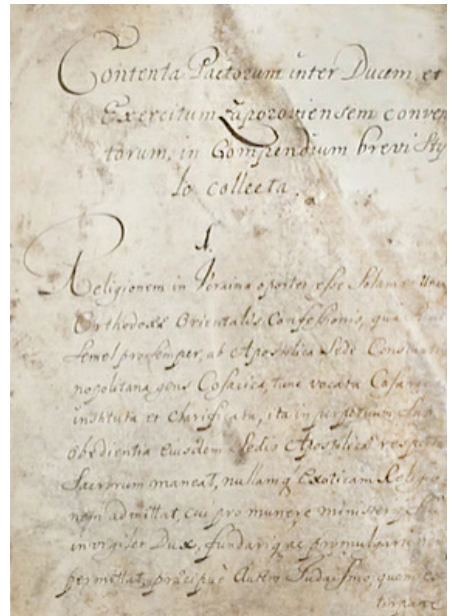 Contenta Pactorum inter Ducem et
Exercitum Zaporoviensem conven
torum, in Compendium brevi Sty
lo collecta.
1.
Religionem in Ucraina oportet esse Solam et
Orthodoxæ Orientalis Confessionis, quæ
semel pro semper, ab Apostolica Sede Constanti
nopolitana gens Cosacica, tunc vocata
instituta et clarificata, ita in perpetuum sub
obedientia eiusdem Sedis Apostolicæ respectu
Sacrorum maneat, nullamq Exoticam Religio
nem admittat, cui pro munere ministerij sui
invigilet Dux, fundariq ac promulgari non
permittat, præcipue autem Judaismo, quem ex
tirpare